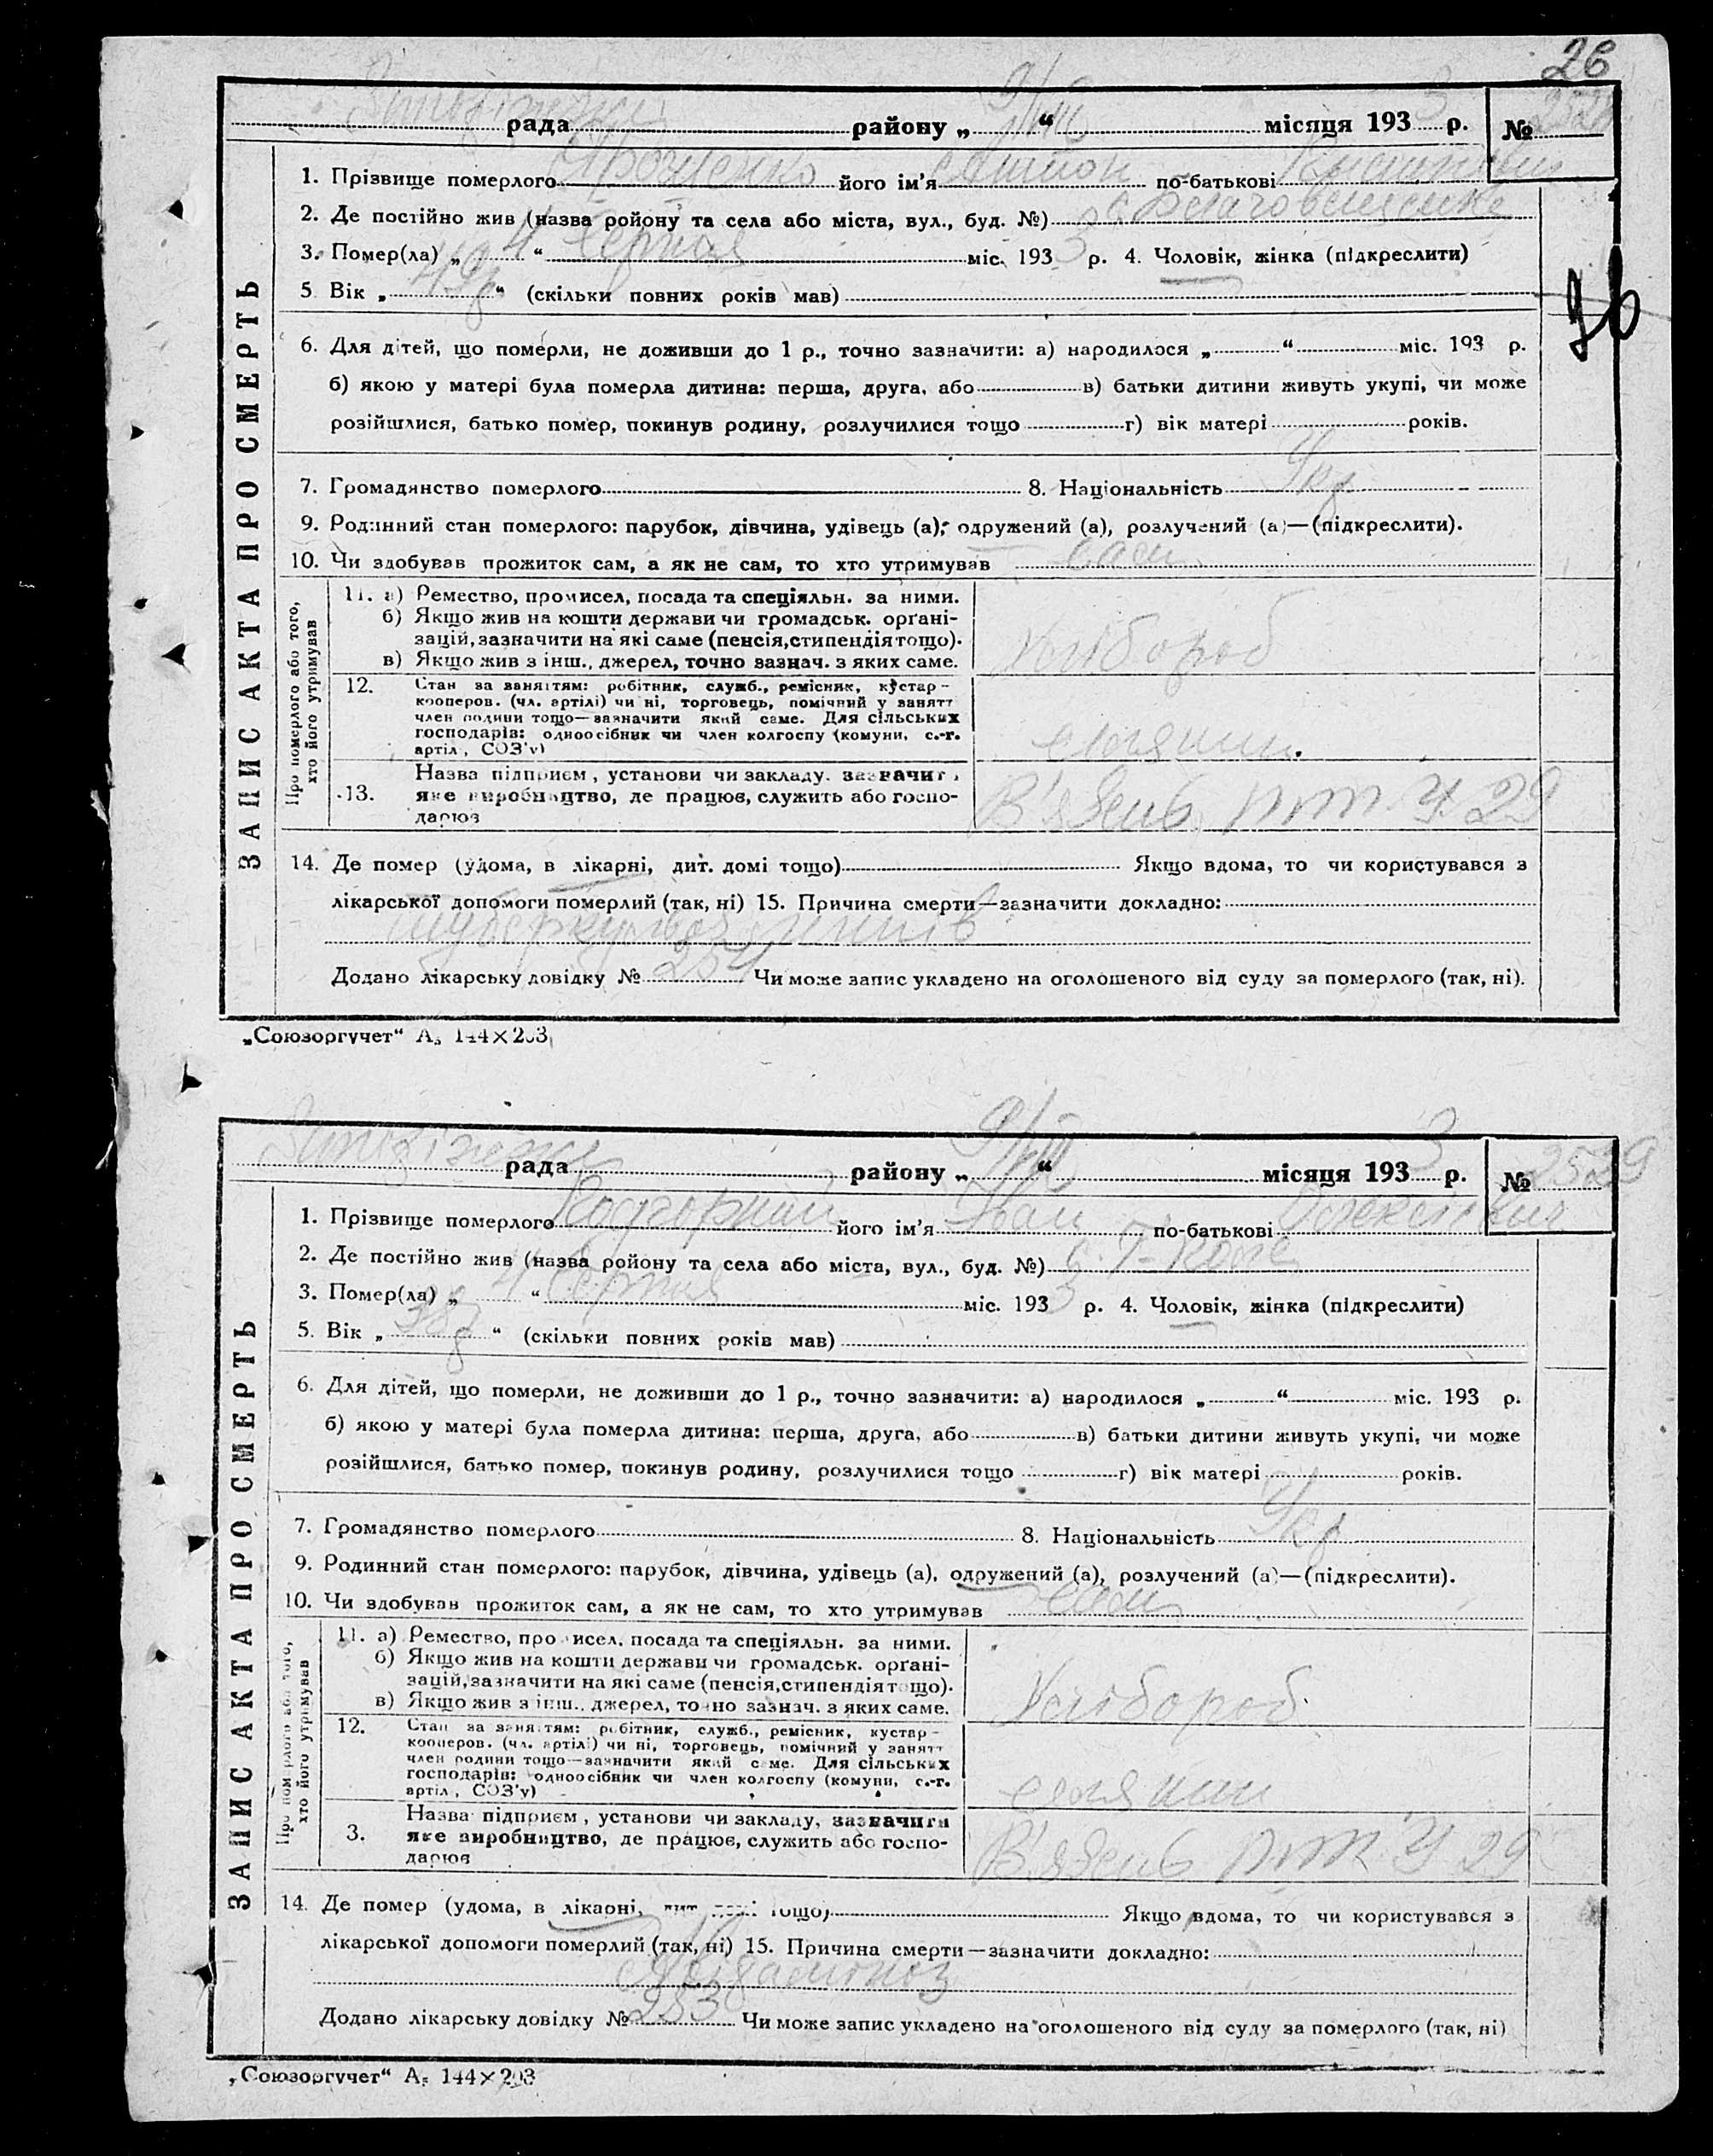 26
рада району „ “ місяця 193 3 р. №
1. Прізвище померлого його ім'я по-батькові
2. Де постійно жив (назва ройону та села або міста, вул., буд. №)
3. Помер(ла) „ 4 “ Серпня міс. 193 3 р. 4. Чоловік, жінка (підкреслити)
5 Вік „ “ (скільки повних років мав)
6. Для дітей, що померли, не доживши до 1 р., точно зазначити: а) народилося „ “ міс. 193 р.
б) якою у матері була померла дитина: перша, друга, або в) батьки дитини живуть укупі, чи може
розійшлися, батько помер, покинув родину, розлучилися тощо г) вік матері років.
7. Громадянство померлого 8. Національність Укр
9. Родинний стан померлого: парубок, дівчина, удівець (а); одружений (а), розлучений (а)—(підкреслити).
10. Чи здобував прожиток сам, а як не сам, то хто утримував сам
ЗАПИС АКТА ПРО СМЕРТЬ
Про померлого або того, хто його утримував
11. а) Ремество, промисел, посада та спеціяльн. за ними.
б) Якщо жив на кошти держави чи громадськ. орґані-
зацій, зазначити на які саме (пенсія, стипендія тощо).
в) Якщо жив з інш., джерел, точно зазнач. з яких саме.
Хлібороб
12. Стан за заняттям: робітник, служб., ремісник, кустар-
кооперов. (чл. артілі) чи ні, торговець, помічний у занятт
член родини тощо—зазначити який саме. Для сільських
господарів: одноосібник чи член колгоспу (комуни, с.-г.
артіл, СОЗ'у)
селянин.
13. Назва підприєм, установи чи закладу, зазначит
яке виробництво, де працює, служить або госпо-
дарює
В'язень птп У 29
14. Де помер (удома, в лікарні, дит. домі тощо) Якщо вдома, то чи користувався з
лікарської допомоги померлий (так, ні) 15. Причина смерти—зазначити докладно:
туберкульоз легенів
Додано лікарську довідку № 254 Чи може запис укладено на оголошеного від суду за померлого (так, ні).
„Союзоргучет“ А₅ 144×203
рада району „ 9/VIII “ місяця 193 3 р. № 2529
1. Прізвище померлого Подгорний його ім'я Іван по-батькові Олексієвич
2. Де постійно жив (назва ройону та села або міста, вул., буд. №)
3. Помер(ла) „ 4 “ Серпня міс. 193 3 р. 4. Чоловік, жінка (підкреслити)
5. Вік „ “ (скільки повних років мав)
6. Для дітей, що померли, не доживши до 1 р., точно зазначити: а) народилося „ “ міс. 193 р.
б) якою у матері була померла дитина: перша, друга, або в) батьки дитини живуть укупі, чи може
розійшлися, батько помер, покинув родину, розлучилися тощо г) вік матері років.
7. Громадянство померлого 8. Національність Укр
9. Родинний стан померлого: парубок, дівчина, удівець (а), одружений (а), розлучений (а)—(підкреслити).
10. Чи здобував прожиток сам, а як не сам, то хто утримував сам
ЗАПИС АКТА ПРО СМЕРТЬ
Про померлого або того, хто його утримував
11. а) Ремество, промисел, посада та спеціяльн. за ними.
б) Якщо жив на кошти держави чи громадськ. орґані-
зацій, зазначити на які саме (пенсія, стипендія тощо).
в) Якщо жив з інш., джерел, точно зазнач. з яких саме.
Хлібороб.
12. Стан за заняттям: робітник, служб., ремісник, кустар-
кооперов. (чл. артілі) чи ні, торговець, помічний у занятт
член родини тощо—зазначити який саме. Для сільських
господарів: одноосібник чи член колгоспу (комуни, с.-г.
артіл, СОЗ'у)
селянин
3. Назва підприєм, установи чи закладу, зазначити
яке виробництво, де працює, служить або госпо-
дарює
В'язень птп У 29
14. Де помер (удома, в лікарні, дит. домі тощо) Якщо вдома, то чи користувався з
лікарської допомоги померлий (так, ні) 15. Причина смерти—зазначити докладно:
Додано лікарську довідку № 253 Чи може запис укладено на оголошеного від суду за померлого (так, ні)
„Союзоргучет“ А₅ 144×203